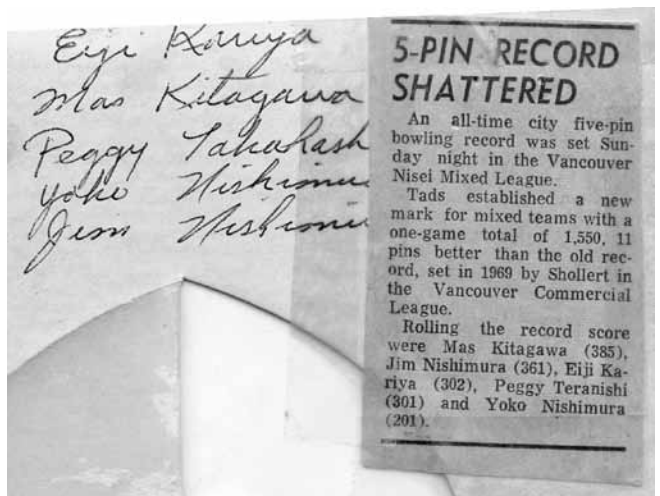 Eiji Kariya
Mas Kitagawa
Peggy Takahash
Yoko Nishimu
Jim Nishimu
5-PIN RECORD
SHATTERED
An all-time city five-pin
bowling record was set Sun-
day night in the Vancouver
Nisei Mixed League.
Tads established a new
mark for mixed teams with a
one-game total of 1,550, 11
pins better than the old rec-
ord, set in 1969 by Shollert in
the Vancouver Commercial
League.
Rolling the record score
were Mas Kitagawa (385),
Jim Nishimura (361), Eiji Ka-
riya (302), Peggy Teranishi
(301) and Yoko Nishimura
(201).